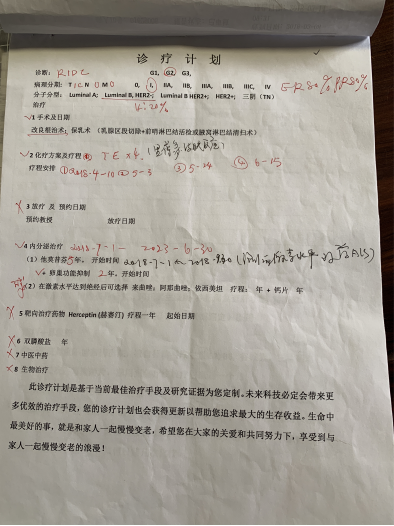 诊 疗 计 划
诊断: RIDC G1, G2, G3,
病理分期: T 1C N 0 M 0 0, I, IIA, IIB, IIIA, IIIB, IIIC, IV ER80% PR80%
分子分型: Luminal A; Luminal B, HER2-; Luminal B HER2+; HER2+; 三阴 (TN)
治疗 Ki 20%
√1 手术及日期
改良根治术; 保乳术 (乳腺区段切除+前哨淋巴结活检或腋窝淋巴结清扫术)
√2 化疗方案及疗程 TE×4
疗程安排 ①2018-4-10 ② 5-3 ③ 5-24 ④ 6-15
X 3 放疗 及 预约日期
预约教授 放疗日期
√4 内分泌治疗 2018-7-1 — 2023-6-30
(1) 他莫昔芬 5 年, 开始时间
√ 卵巢功能抑制 2 年, 开始时间
(2) 在激素水平达到绝经后可选择 来曲唑; 阿那曲唑; 依西美坦 疗程: 年 + 钙片 年
X 5 靶向治疗药物 Herceptin (赫赛汀) 疗程一年 起始日期
X 6 双膦酸盐 年
X 7 中医中药
X 8 生物治疗
此诊疗计划是基于当前最佳治疗手段及研究证据为您定制。未来科技必定会带来更
多优效的治疗手段，您的诊疗计划也会获得更新以帮助您追求最大的生存收益。生命中
最美好的事，就是和家人一起慢慢变老，希望您在大家的关爱和共同努力下，享受到与
家人一起慢慢变老的浪漫！